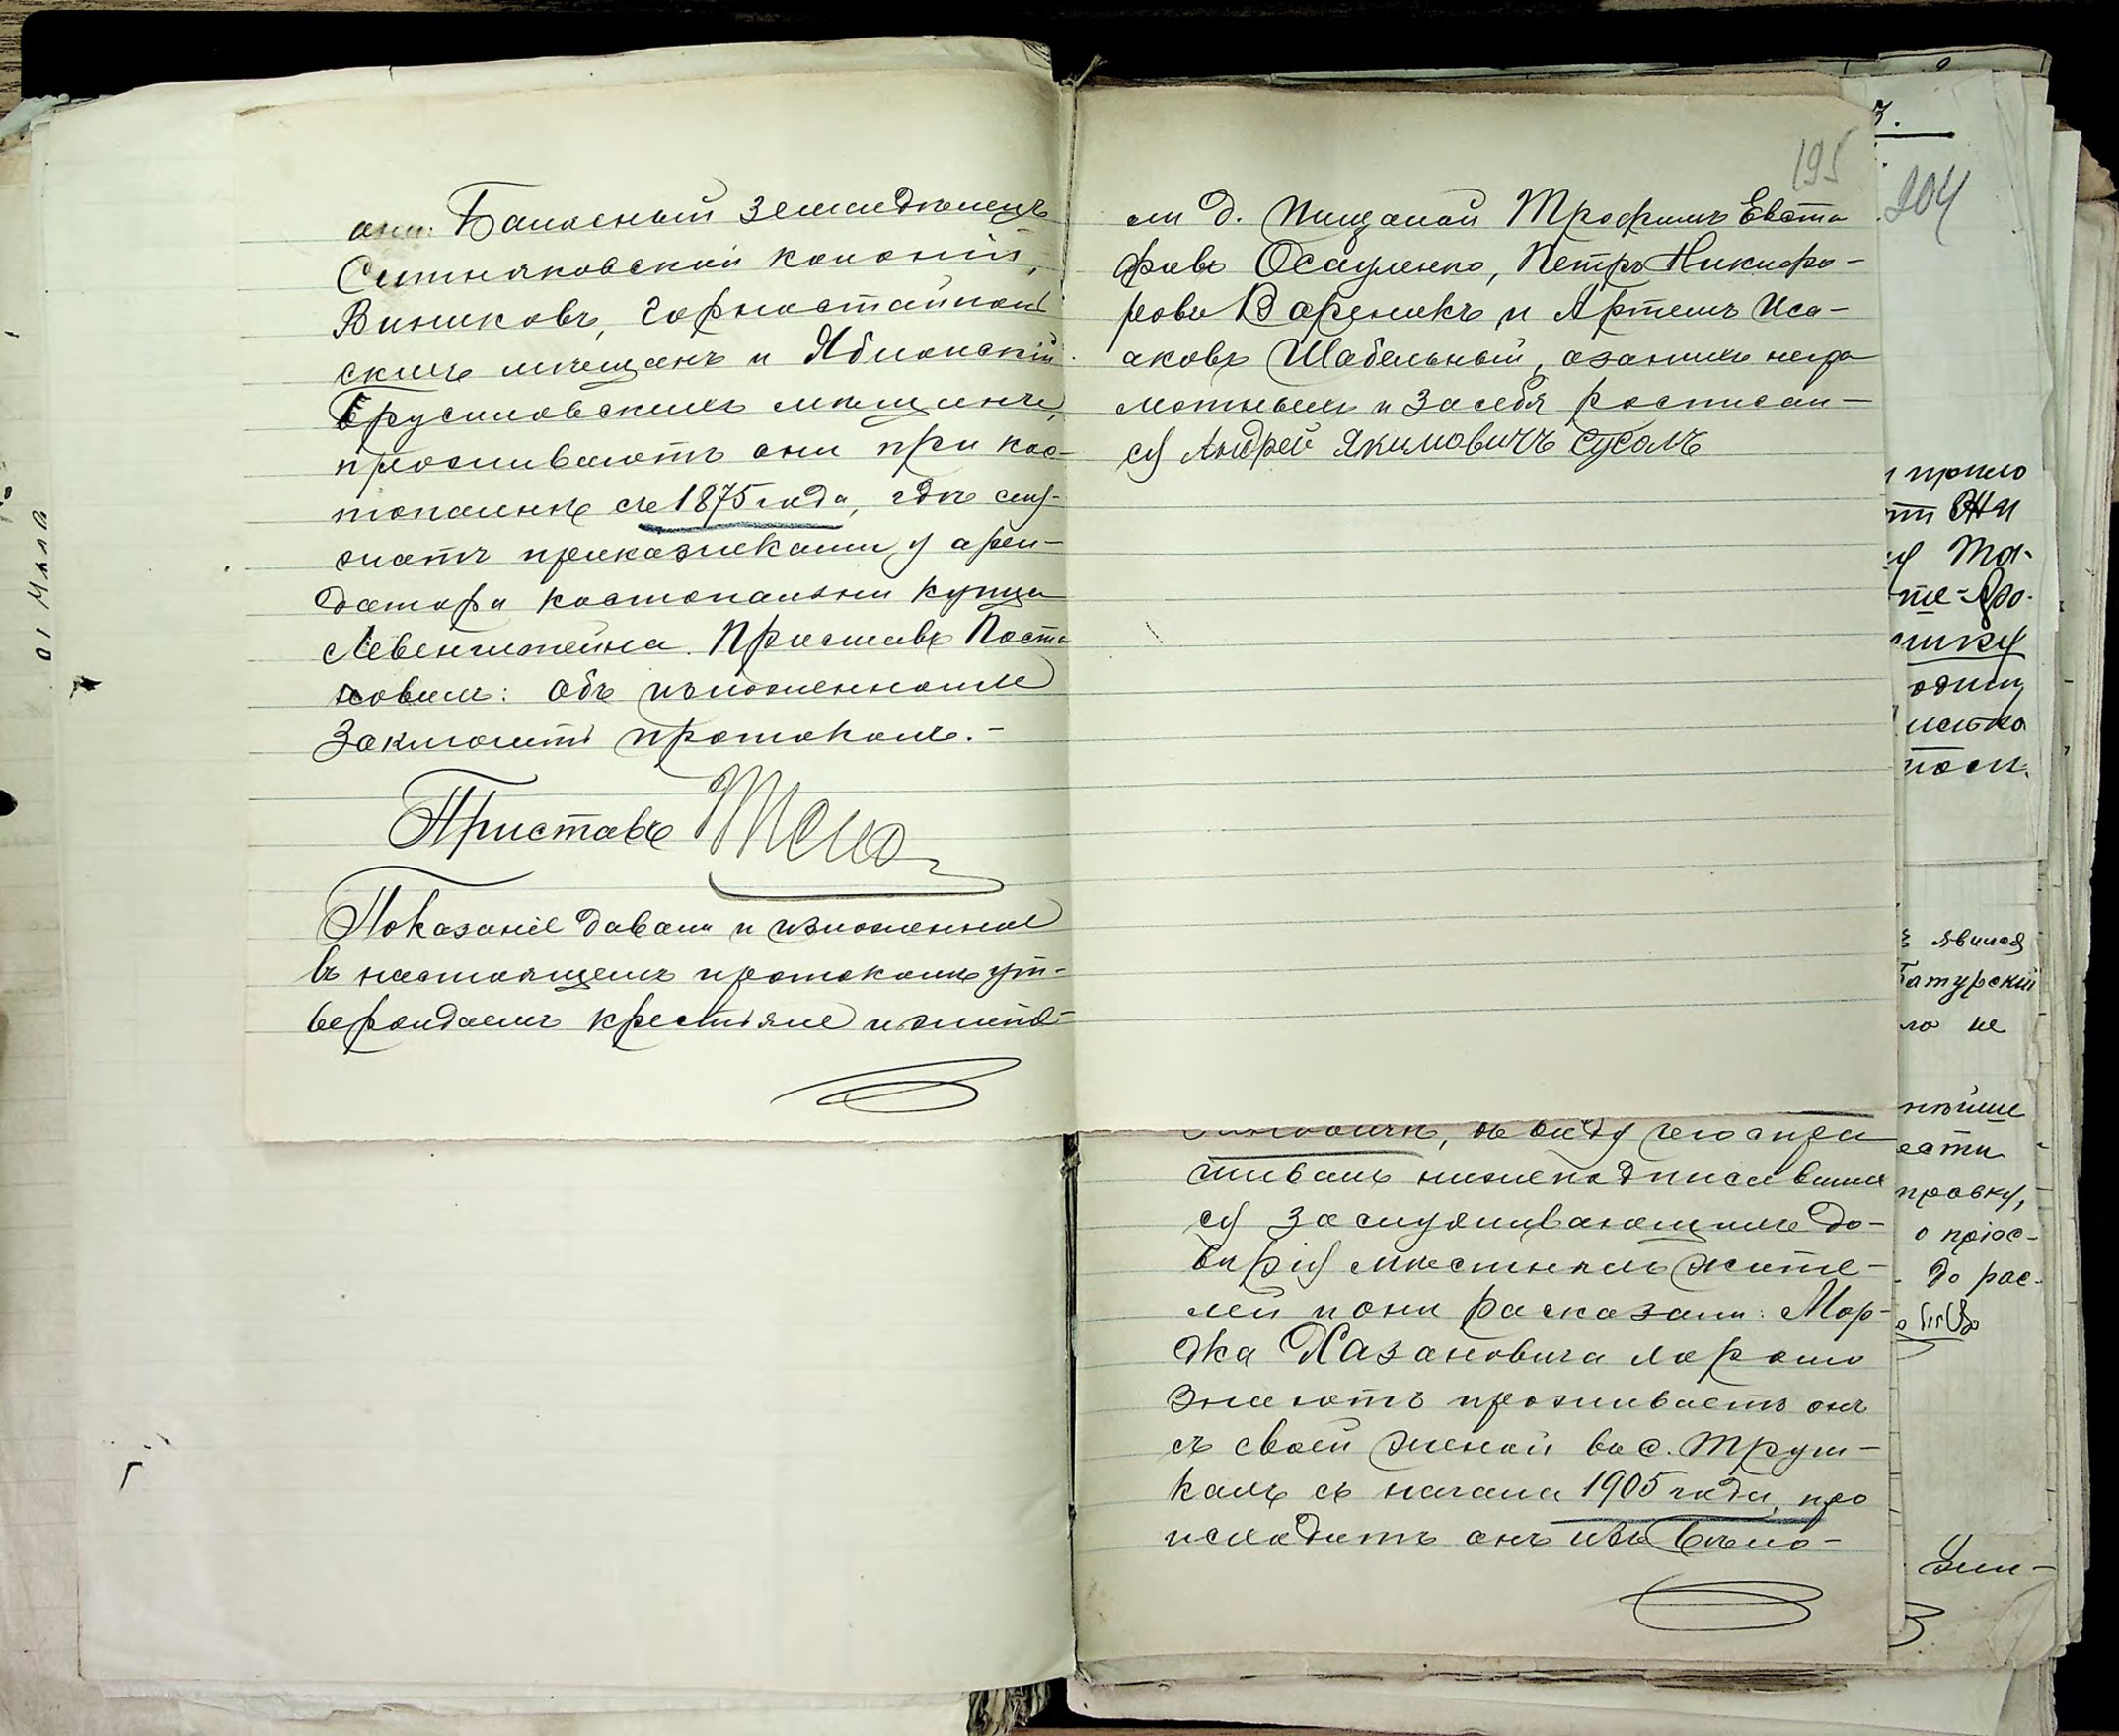 они: Балясный земледѣлецъ
Ситняковской колоніи,
Виниковъ, Горностайполь
скій мѣщанъ и Яблонскій
Брусиловскимъ мѣщанинъ,
проживаютъ они при кос-
топальнѣ съ 1875 года, гдѣ слу-
жатъ приказчиками у арен-
датора костопальни купца
Левенштейна. Приставъ Поста
новилъ: Объ изложенномъ
заключить протоколъ.-
Приставъ
Показаніе давали и изложенное
въ настоящемъ протоколѣ ут-
верждаемъ крестьяне и жите-
195
ли д. Пищаной Трофимъ Евста
фіевъ Осауленко, Петръ Никифо-
ровъ Вареникъ и Артемъ Иса-
аковъ Шабельный, а за нихъ негра
мотныхъ и за себя росписал-
ся Андрей Якимовичъ Сусолъ
въ виду чего спра
шивалъ нижеподписавших
ся заслуживающихъ до-
вѣрія мѣстныхъ жите-
лей и они расказали: Мор-
дка Хазановича хорошо
знаютъ проживаетъ онъ
съ своей женой въ с. Труш-
кахъ съ начала 1905 года, про
исходитъ онъ изъ Бѣло-
204
прило
Та-
одинъ
явился
Батурскій
ло не
провку,
о пріос-
до рас-